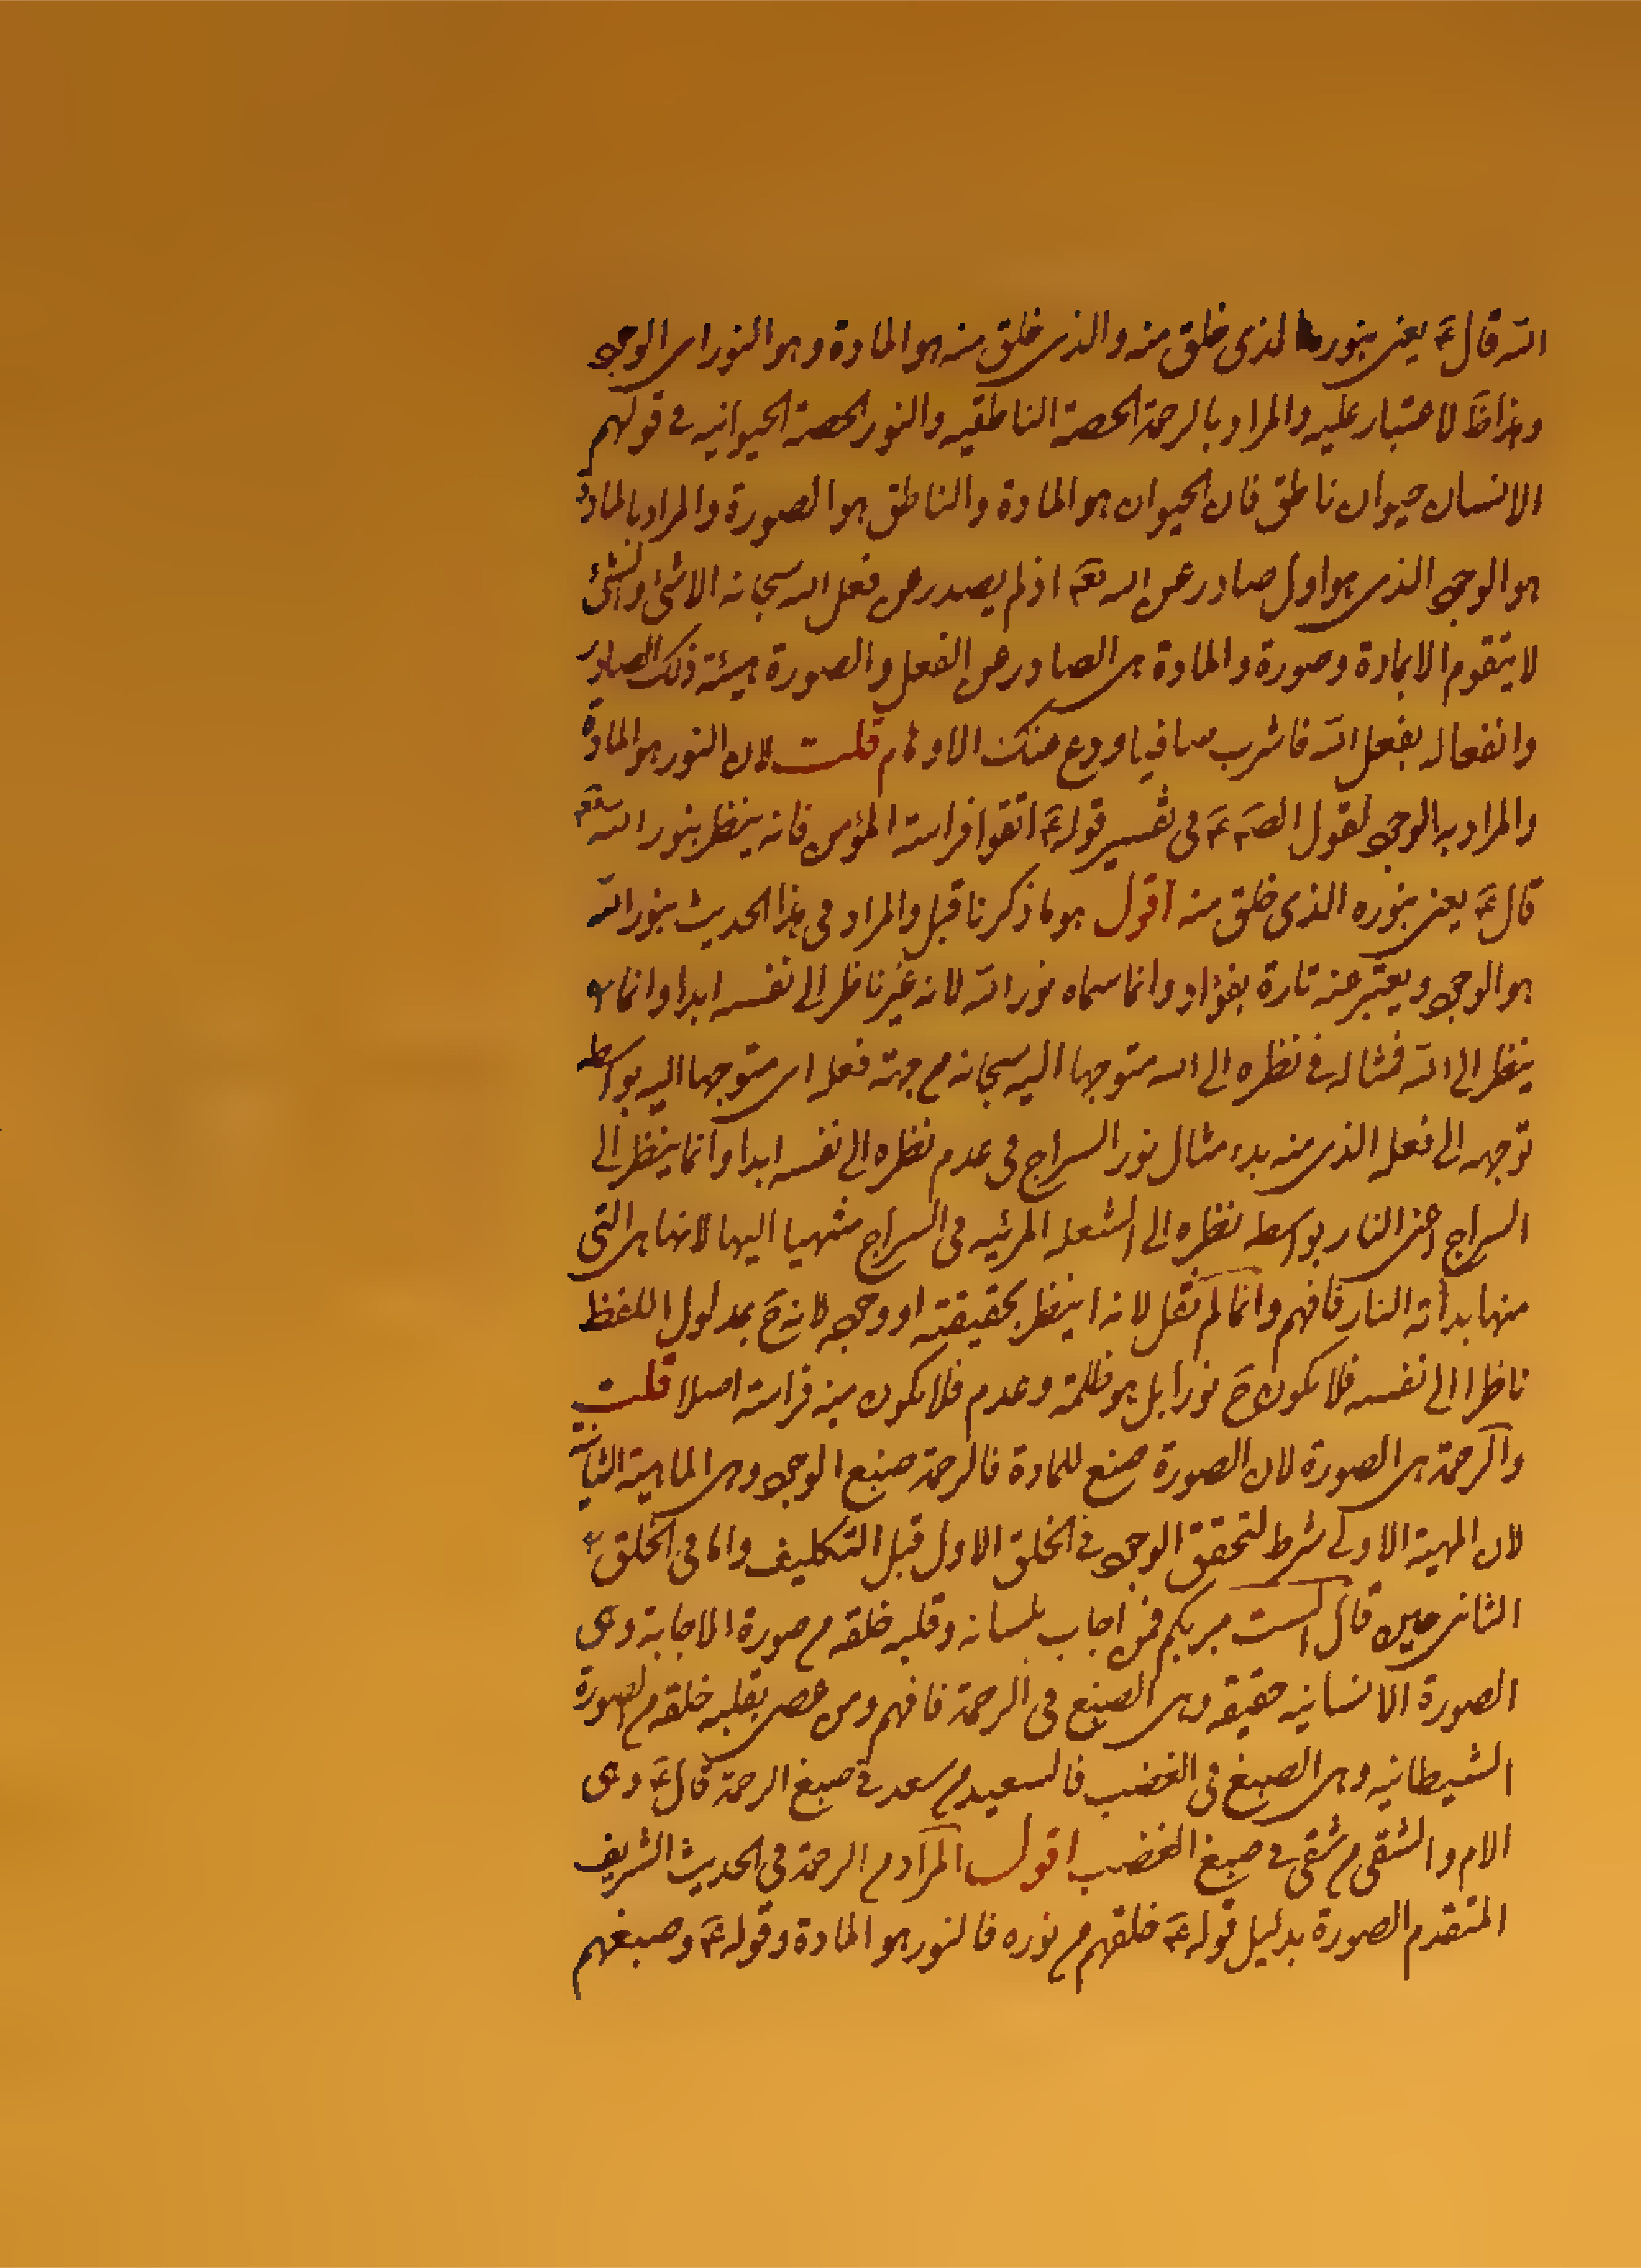 الله قال ع يعنى بنوره الذى خلق منه والذى خلق منه هو المادة وهو النور اى الوجو
وهذا ظ لا غبار عليه والمراد بالرحمة الحصة الناطقيه والنور الحصة الحيوانيه فى قولهم
الانسان حيوان ناطق فان الحيوان هو المادة والناطق هو الصورة والمراد بالمادة
هو الوجو الذى هو اول صادر عن الله تعم اذ لم يصدر عن فعل الله سبحانه الا شئ والشئ
لا يتقوم الا بمادة وصورة والمادة هى الصادر عن الفعل والصورة هيئة ذلك الصادر
وانفعاله بفعل الله فاشرب صافيا ودع عنك الاوهام قلت لان النور هو المادة
والمراد به الوجو لقول الصم ع فى تفسير قوله ع اتقوا فراسة المؤمن فانه ينظر بنور الله تعم
قال ع يعنى بنوره الذى خلق منه اقول هو ما ذكرنا قبل والمراد فى هذا الحديث بنور الله
هو الوجو ويعبر عنه تارة بفؤاد وانما سماه نور الله لانه غير ناظر الى نفسه ابدا وانما
ينظر الى الله فمثاله فى نظره الى الله متوجها اليه سبحانه م جهة فعله اى متوجها اليه بواسطه
توجهه الى فعله الذى منه بدء مثال نور السراج فى عدم نظره الى نفسه ابدا وانما ينظر الى
السراج اعنى النار بواسطه نظره الى الشعله المرئيه فى السراج منتهيا اليها لانها هى التى
منها بدأته النار فافهم وانما لم نقل لانه ا ينظر بحقيقته او وجوه لانه ح بمدلول اللفظ
ناظرا الى نفسه فلا يكون ح نورا بل هو ظلمة وعدم فلا يكون منه فراسة اصلا قلت
والرحمة هى الصورة لان الصورة صبغ للمادة فالرحمة صبغ الوجو وهى الماهية الثانية
لان المهية الاولى شرط لتحقق الوجو فى الخلق الاول قبل التكليف واما فى الخلق
الثانى حين قال الست بربكم فمن اجاب بلسانه وقلبه خلقه م صورة الاجابة وهى
الصورة الانسانيه حقيقه وهى الصبغ فى الرحمة فافهم ومن عصى بقلبه خلقه م الصورة
الشيطانيه وهى الصبغ فى الغضب فالسعيد م سعد فى صبغ الرحمة قال ع وهى
الام والشقى م شقى فى صبغ الغضب اقول المراد م الرحمة فى الحديث الشريف
المتقدم الصورة بدليل قوله ع خلقهم م نوره فالنور هو المادة وقوله ع وصبغهم